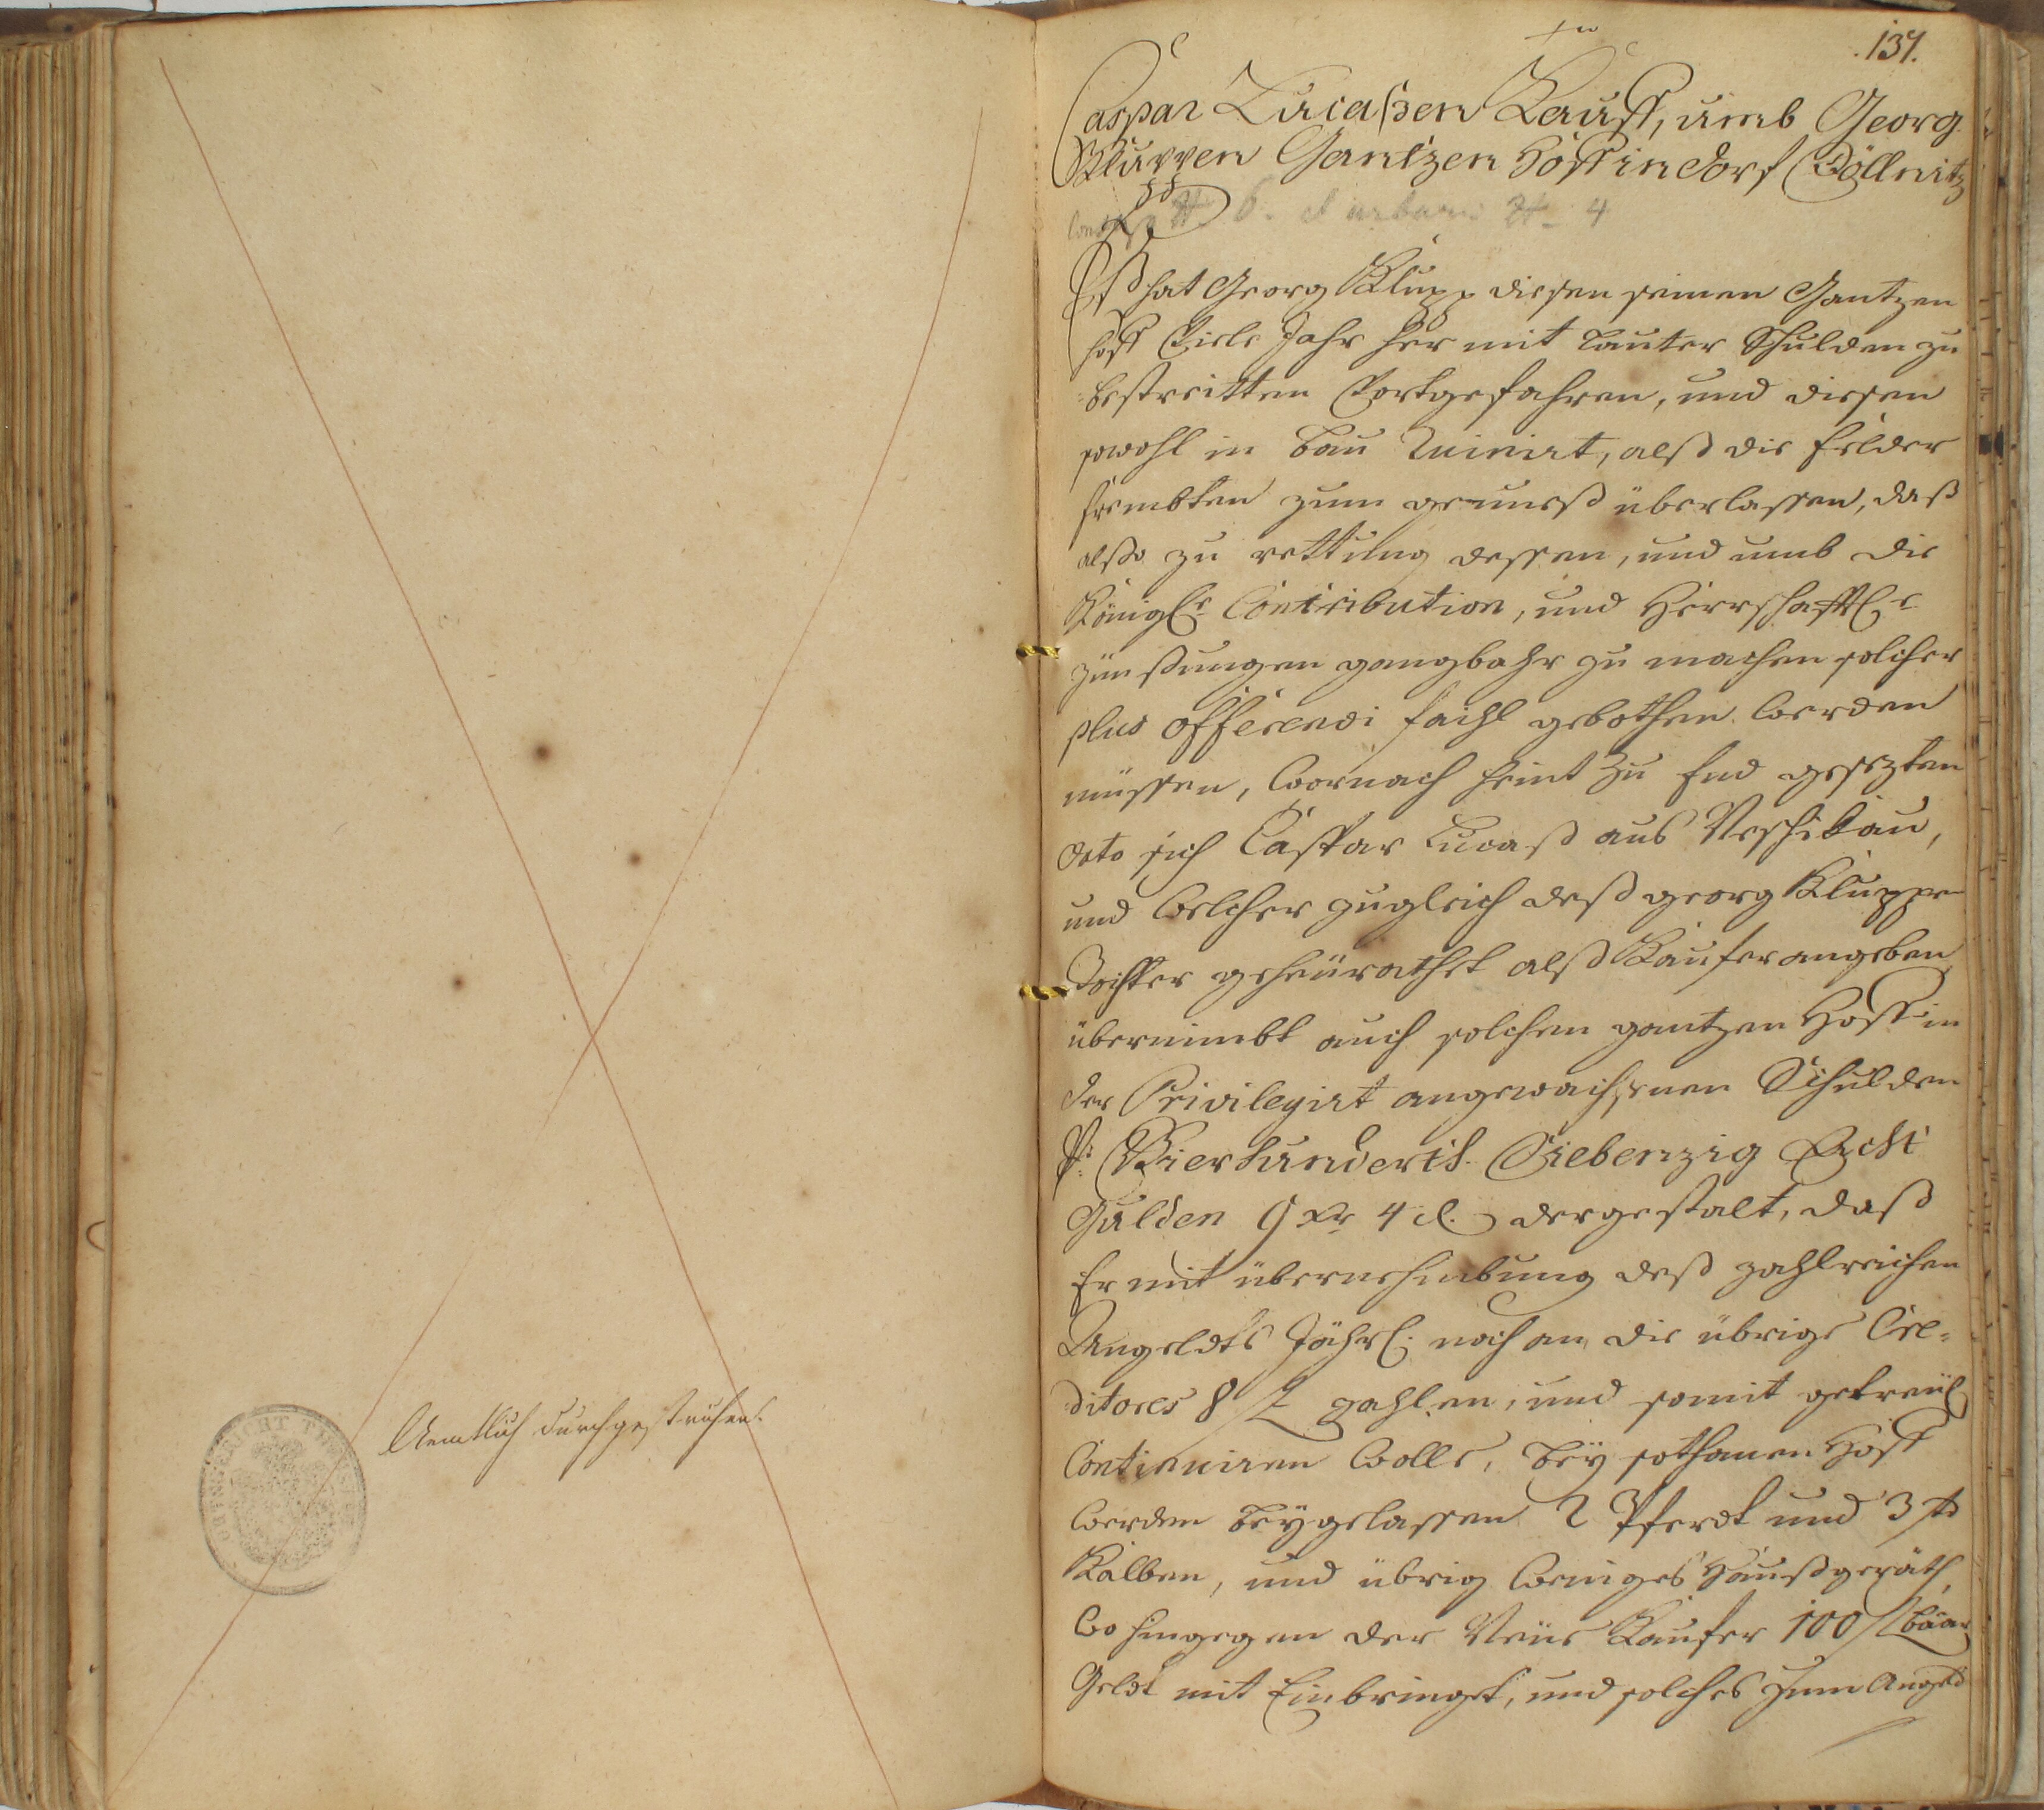 Aemtlich durchgestrichen.
137.
Caspar Lucaßen Kauff, umb Georg
Kluppen Gantzen Hoff in dorf Göllnitz
6. 4
Eß hat Georg Klupp diesen seinen Gantzen
hoff Viele Jahr her mit lauter Schulden zu
bestreitten Fortgefahren, und diesen
sowohl in bau Ruinirt, alß die felder
frembten zum genuß überlassen, daß
alßo zu rettung dessen, und umb die
Königl. Contribution, und Herrschafftl.
zünßungen gangbahr zu machen solcher
plus offerendi faihl gebothen werden
müssen, wornach heint zu End gesezten
dato sich Casspar Lucaß aus
und welcher zugleich deß georg Kluppe
Tochter geheürathet alß Kaufer angeben
übernimbt auch solchen gantzen Hoff in
der Privilegirt angewachsenen Schulden
Pr. Vierhundert Siebenzig Acht
Gulden 9 xr 4 d. dergestalt, daß
Er mit übernehmbung deß zahlreichen
Angeldts Jährl. noch an die übrige Cre-
ditores 8 f zahlen, und somit getreül.
Continuiren wolle, bey sothanen Hoff
werden beygelassen 2 Pferdt und 3 st
Kalben, und übrig weniges Haußgeräth,
wo hingegen der Neüe Kaufer 100 f baar
Geldt mit Einbringet, und solches zum Angeld